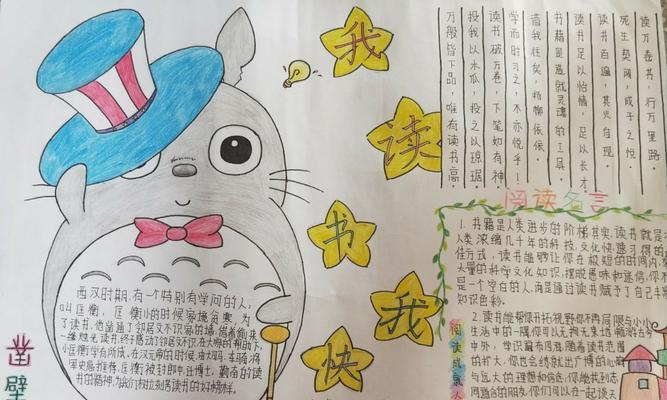 我
读
书
我
快
读万卷书，行万里路。
死生契阔，或子之悦
读书百遍，其义自现。
读书足以怡情，足以长才
书籍是造就灵魂的工具。
昔我往矣，杨柳依依。
学而时习之，不亦悦乎！
读书破万卷，下笔如有神
投我以木瓜，投之以琼琚
万般皆下品，唯有读书高。
阅读名言
1. 书籍是人类进步的阶梯其实，读书就是
人类浓缩几千年的科技，文化快速习得的
佳方式，读书能够让你在极短的时间内，
大量的科学文化知识，摆脱愚昧和迷信，你
是一个空白的人，
知识色彩。
2. 读书能帮你开拓视野你不再局限与小小
生活中的一隅你可以无拘无束地
中外，学识渊
的扩大，你也会练就出广博的心
与远大的理想和信念，你能找到志
同道合的朋友，你们可以在一起谈天
阅读成就人
西汉时期，有一个特别有学问的人，
叫匡衡，匡衡小的时候家境贫寒，为
了读书，他凿通了邻居文不识家的墙，借着偷来
一缕烛光读书，终于感动了邻居文不识，在大家的帮助下，
小匡衡学有所成，在汉元帝的时候，由大司马、车骑将
军史高推荐，匡衡被封郎中，迁博士，勤奋的读
书的精神，
凿
壁